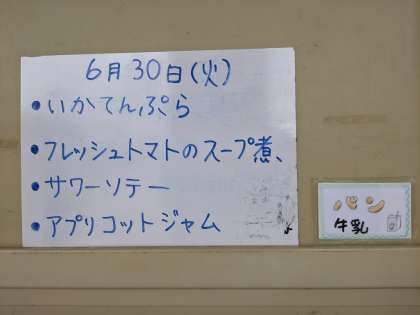 6月30日(火)
・いかてんぷら
・フレッシュトマトのスープ煮、
・サワーソテー
・アプリコットジャム
パン
牛乳